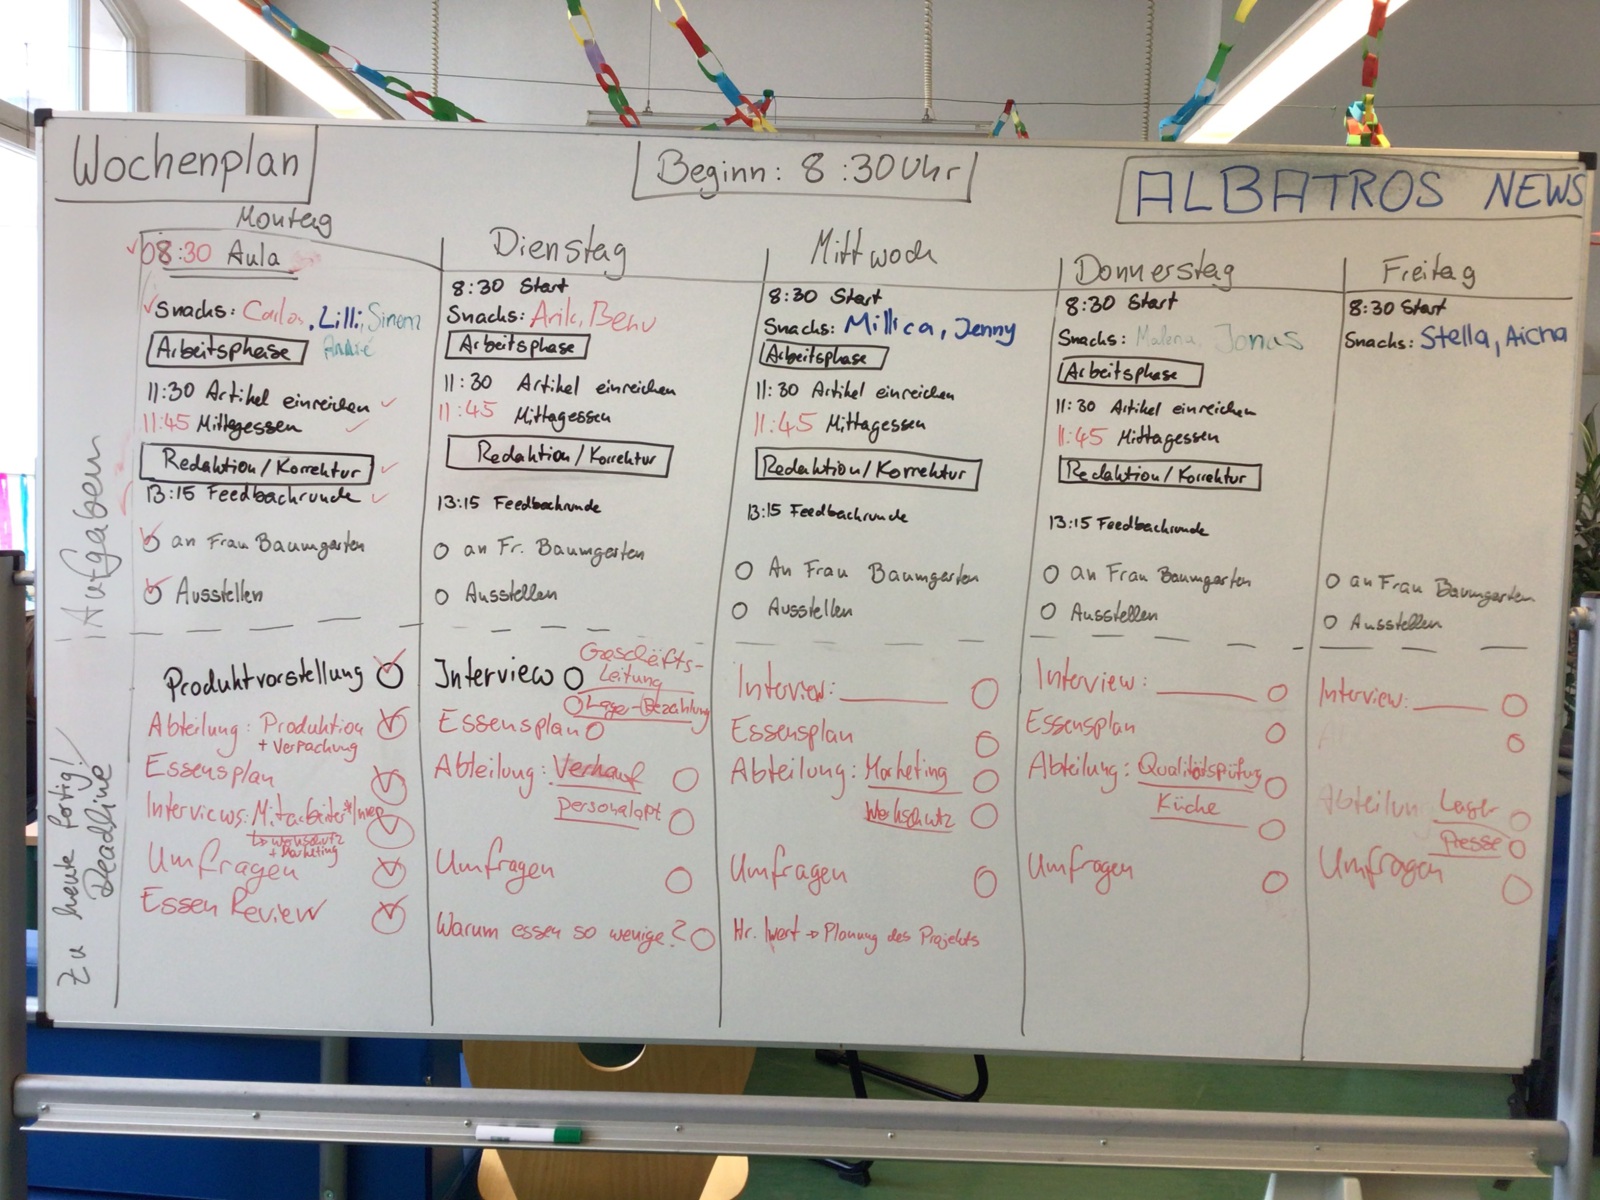 Wochenplan
Beginn: 8:30 Uhr
ALBATROS NEWS
! Aufgaben
Zu heute fertig!
Deadline
Montag
08:30 Aula
Snacks: Carlos, Lilli, Sinem
André
Arbeitsphase
11:30 Artikel einreichen
11:45 Mittagessen
Redaktion/Korrektur
13:15 Feedbackrunde
an Frau Baumgarten
Ausstellen
Produktvorstellung
Abteilung: Produktion
+ Verpackung
Essensplan
Interviews: Mitarbeiter*Innen
↳ Werkschutz
+ Marketing
Umfragen
Essen Review
Dienstag
8:30 Start
Snacks: Arik, Benu
Arbeitsphase
11:30 Artikel einreichen
11:45 Mittagessen
Redaktion/Korrektur
13:15 Feedbackrunde
an Fr. Baumgarten
Ausstellen
Interview Geschäfts-
Leitung
Lager-(Bezahlung
Essensplan
Abteilung: Verkauf
personalapt
Umfragen
Warum essen so wenige?
Mittwoch
8:30 Start
Snacks: Millica, Jenny
Arbeitsphase
11:30 Artikel einreichen
11:45 Mittagessen
Redaktion/Korrektur
13:15 Feedbackrunde
An Frau Baumgarten
Ausstellen
Interview:
Essensplan
Abteilung: Marketing
Werkschutz
Umfragen
Hr. → Planung des Projekts
Donnerstag
8:30 Start
Snacks: Malena, Jonas
Arbeitsphase
11:30 Artikel einreichen
11:45 Mittagessen
Redaktion/Korrektur
13:15 Feedbackrunde
an Frau Baumgarten
Ausstellen
Interview:
Essensplan
Abteilung: Qualitätspüfung
Küche
Umfragen
Freitag
8:30 Start
Snacks: Stella, Aicha
an Frau Baumgarten
Ausstellen
Interview:
Abteilun Lager
Presse
Umfragen